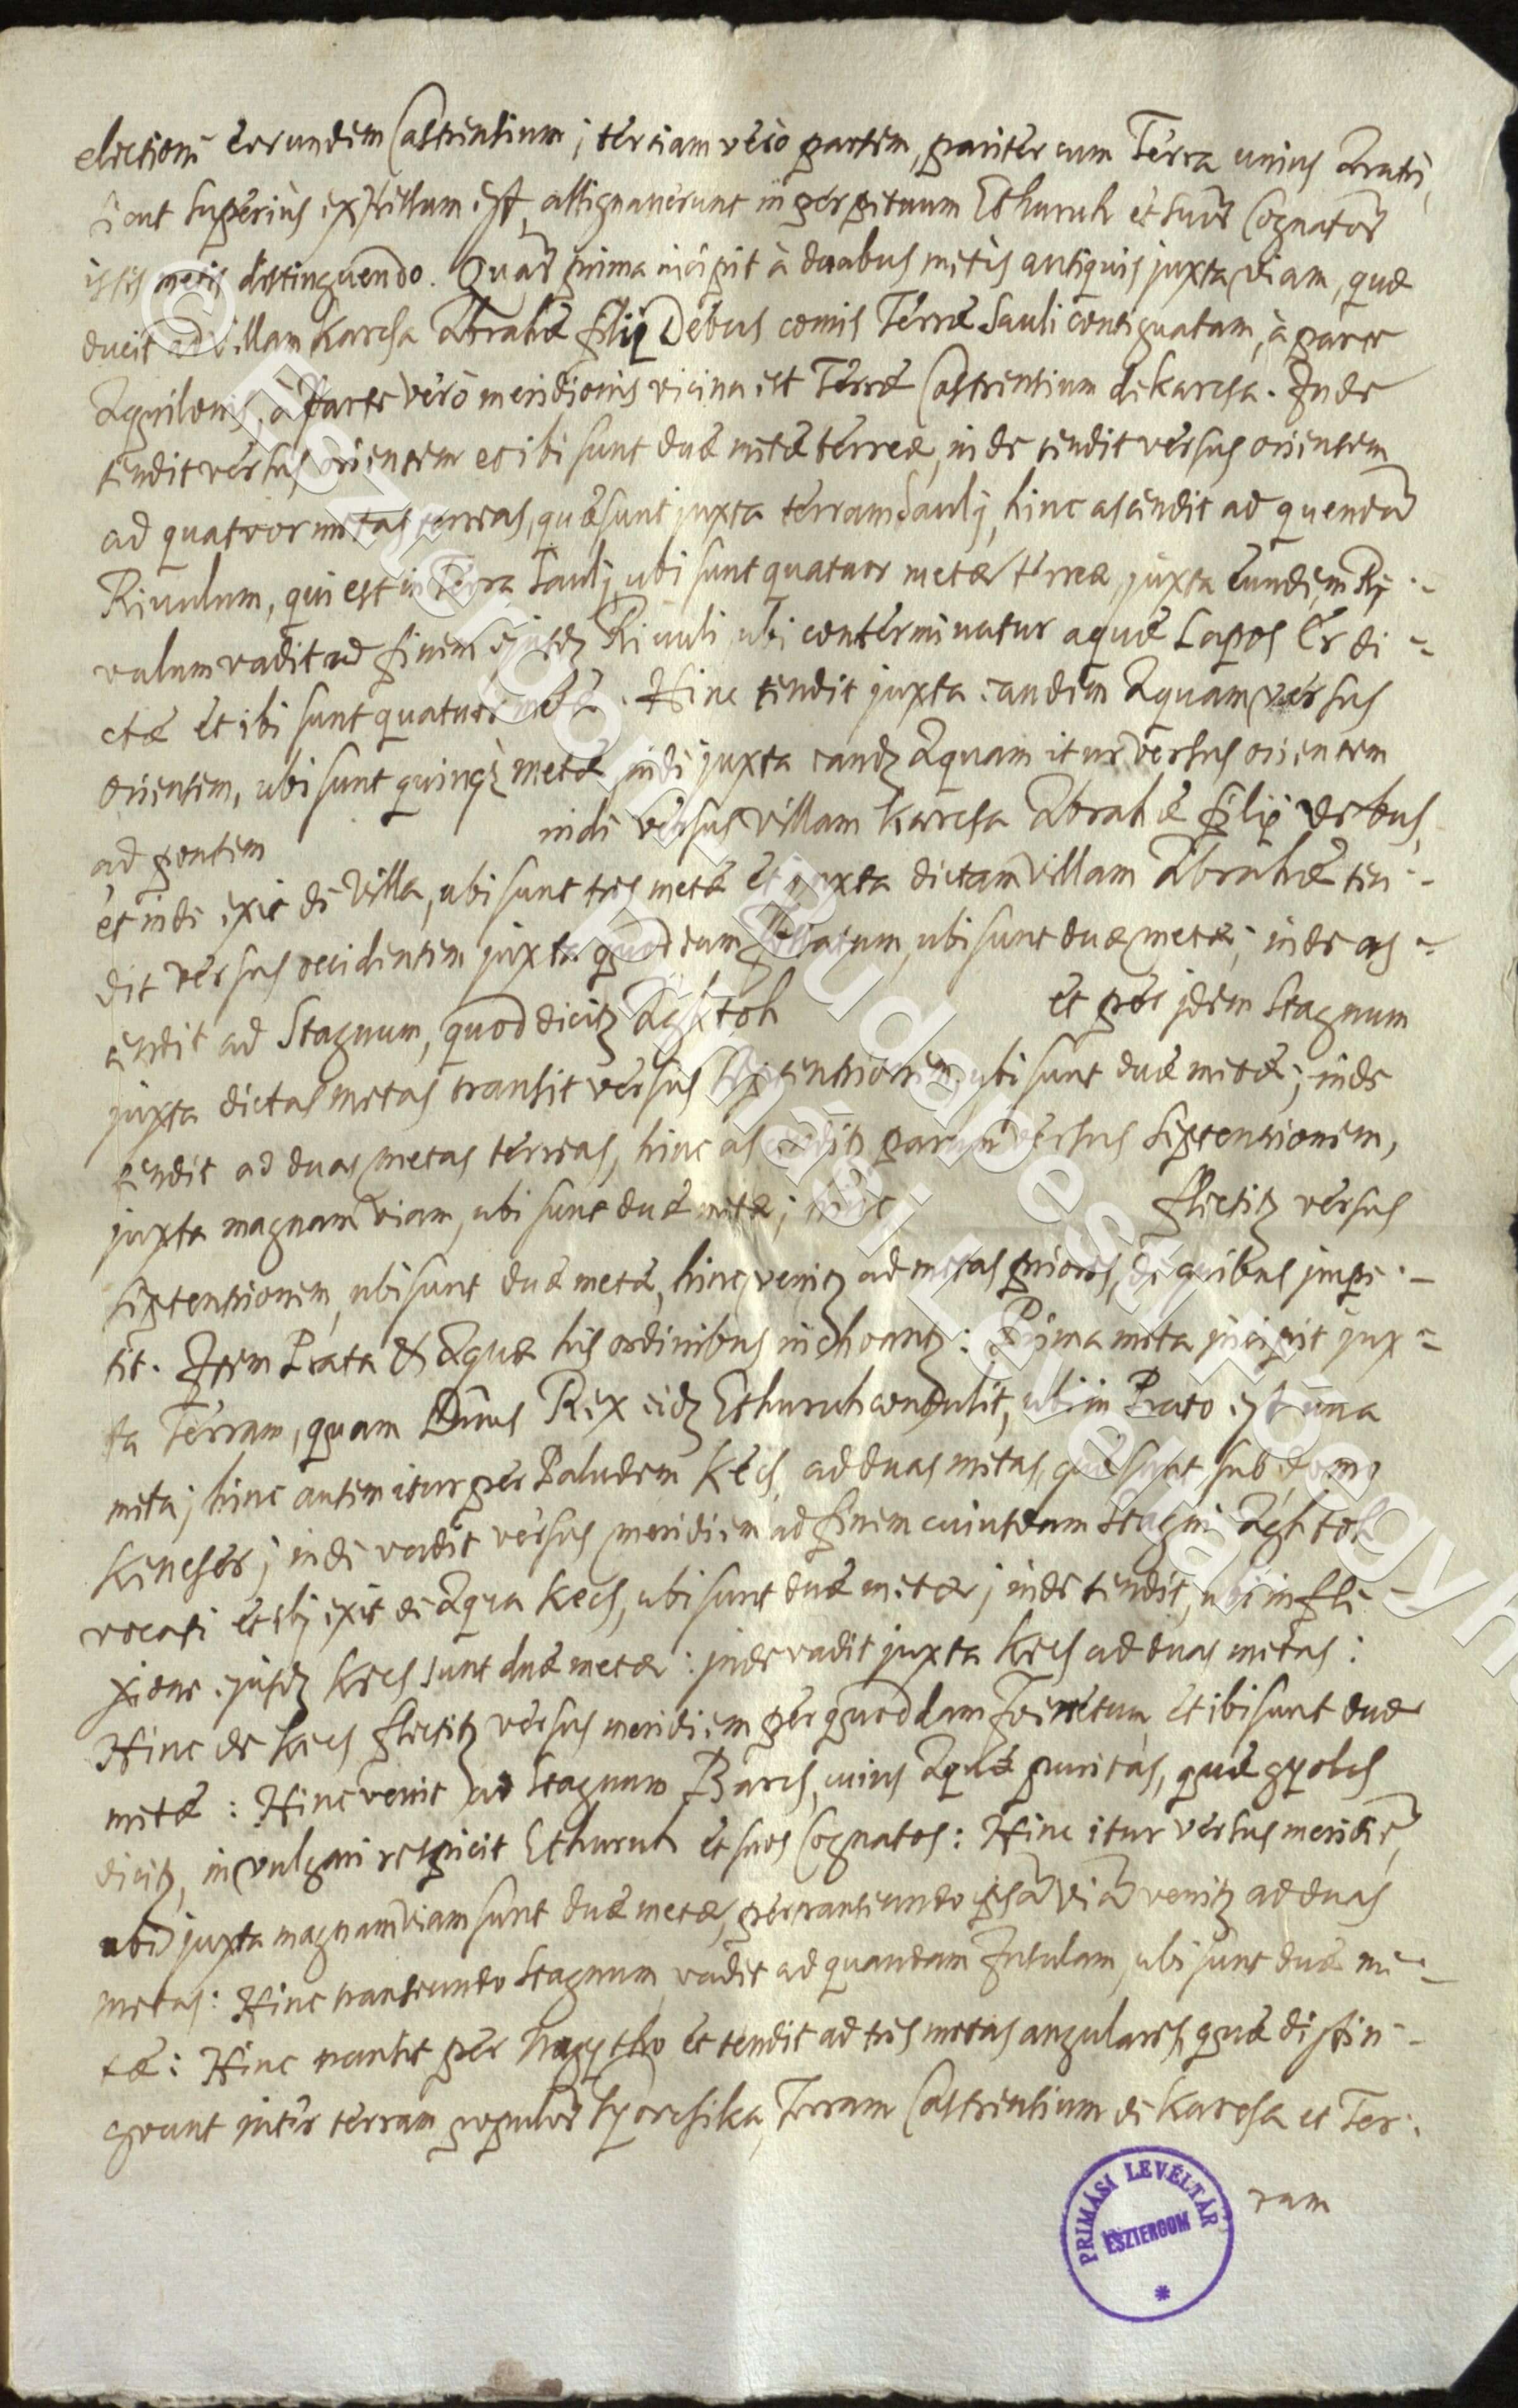 electioni eorundem Castrensium; terciam vero partem, pariter cum Terra unius Aratri,
sicut superius expressum est, assignaverunt in perpetuum Ethuruh et suor̃ Cognator̃
istis metis distinguendo. Quar̃ prima incipit à duabus metis antiquis juxta viam, quæ
ducit ad villam Karcsa Abrahæ filij Debus comis Terræ Sauli contiguatam, à parte
Aquilonis, à parte verò meridionis vicina est Terræ Castrensium de Karcsa. Inde
tendit versus orientem et ibi sunt duæ metæ terreæ, inde tendit versus orientem
ad quatvor metas terreas, quæ sunt juxta terram Saulj, hinc ascendit ad quendã
Rivulum, qui est in terra Saulj, ubi sunt quatuor metæ terreæ, juxta eundem Ri-
vulum vadit ad finem ejusdẽ Rivuli ubi conterminatur aquæ Lapos Er di-
ctæ et ibi sunt quatuor metæ. Hinc tendit juxta eandem Aquam versus
orientem, ubi sunt quinq̀ metæ, inde juxta eandẽ Aquam itur versus orientem
ad pontem inde versus villam Karcsa Abrahæ filij Debus,
et inde exit de Villa, ubi sunt tres metæ et juxta dictam villam Abrahæ ten-
dit versus occidentem juxta quoddam fossatum, ubi sunt duæ metæ; inde as-
cendit ad Stagnum, quod dicitr̃ Aghtoh et per idem Stagnum
juxta dictas metas transit versus septentrionem, ubi sunt duæ metæ; inde
tendit ad duas metas terreas, hinc ascenditr̃ parum versus septentrionem,
juxta magnam viam, ubi sunt duæ metæ; hinc flectitr̃ versus
septentrionem, ubi sunt duæ metæ, hinc venitr̃ ad metas priores, de quibus incpe-
tit. Item Prata & Aquæ his ordinibus inchoantr̃: Prima meta incipit jux-
ta Terram, quam Dñus Rex eidẽ Ethuruh contulit, ubi in Prato est una
meta; hinc autem itur per Paludem Kecs, ad duas metas, quæ sunt sub domo
Kincser; inde vadit versus meridiem ad finem cuiusdam Stagni Aghtoh
vocati et ibj exit de Aqua Kecs, ubi sunt duæ metæ; inde tendit, ubi in fle-
xione ejusdẽ Kecs sunt duæ metæ: inde vadit juxta Kecs ad duas metas:
Hinc de Kecs flectitr̃ versus meridiem per quoddam Foenetum et ibi sunt duæ
metæ: Hinc venit ad Stagnum Barcs, cuius Aquæ puritas, quæ gyolcs
dicitr̃, in vulgari respicit Ethuruh et suos Cognatos: Hinc itur versus meridiẽ,
ubi juxta magnam viam sunt duæ metæ, pertranseundo ipsã viã venitr̃ ad duas
metas: Hinc transeundo Stagnum, vadit ad quandam Insulam, ubi sunt duæ me-
tæ: Hinc transit per Nagytho et tendit ad tres metas angulares, quæ distin-
gvunt inter terram populor̃ Sporcsika, Terram Castrensium de Karcsa et Ter-
ram
PRIMÁSI LEVÉLTÁR
ESZTERGOM
© Esztergom-Budapesti Főegyh
Prímási Levéltár